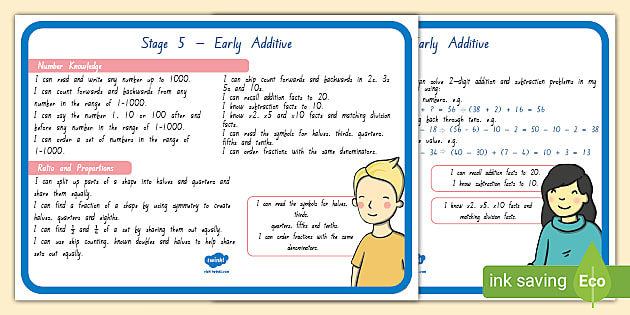 Stage 5 – Early Additive
Number Knowledge
I can read and write any number up to 1000.
I can count forwards and backwards from any
number in the range of 1-1000.
I can say the number 1, 10 or 100 after and
before any number in the range of 1-1000.
I can order a set of numbers in the range of
1-1000.
I can skip count forwards and backwards in 2s, 3s
5s and 10s.
I can recall addition facts to 20.
I know subtraction facts to 10.
I know x2, x5 and x10 facts and matching division
facts.
I can read the symbols for halves, thirds, quarters,
fifths and tenths.
I can order fractions with the same denominators.
Ratio and Proportions
I can split up parts of a shape into halves and quarters and
share them equally.
I can find a fraction of a shape by using symmetry to create
halves, quarters and eighths.
I can find of a set by sharing them out equally.
I can use skip counting, known doubles and halves to help share
sets out equally.
I can read the symbols for halves,
thirds,
quarters, fifths and tenths.
I can order fractions with the same
denominators.
twinkl
visit twinkl.com
Early Additive
can solve 2-digit addition and subtraction problems in my
using:
numbers. e.g.
+ ? = 56 (38 + 2) + 16 = 56
back through tens. e.g.
- 18 (56 - 6) - 10 - 2 = 50 - 10 - 2 = 38
value. e.g.
- 34 (40 - 30) + (7 - 4) = 10 + 3 = 13
I can recall addition facts to 20.
I know subtraction facts to 10.
I know x2, x5, x10 facts and
matching division facts.
ink saving
Eco